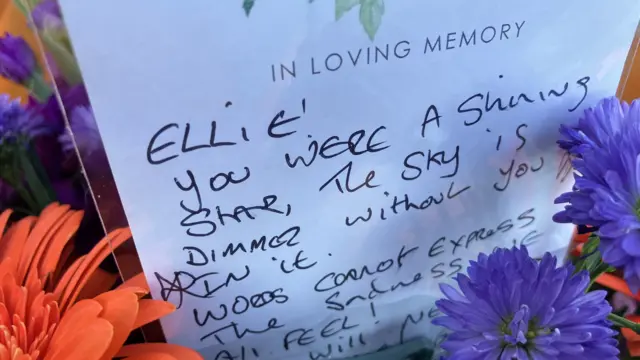 IN LOVING MEMORY
ELLIE!
YOU WERE A Shining
STAR, The Sky is
DIMMER without you
IN it.
WORDS CANNOT EXPRESS
The Sadness
All FEEL!
will